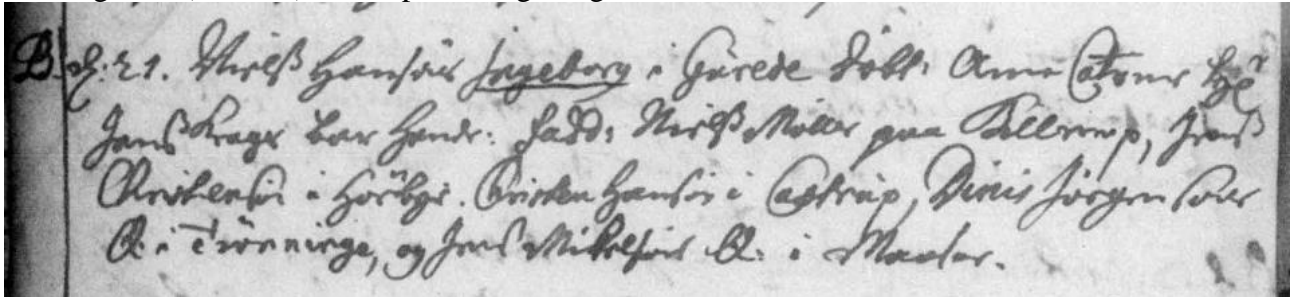 B. d. 21. Nielß Hansøns Ingeborg i Gurede Døbt. Anne Catrine
Jens Krags bar hende: Fadd: Nielß Møller paa Kellerup, Jens
Christensøn i Hörbye. Christen Hansøn i Castrup, Dinis Jørgensøns
K. i Trönninge, og Jens Mikelsøns K. i